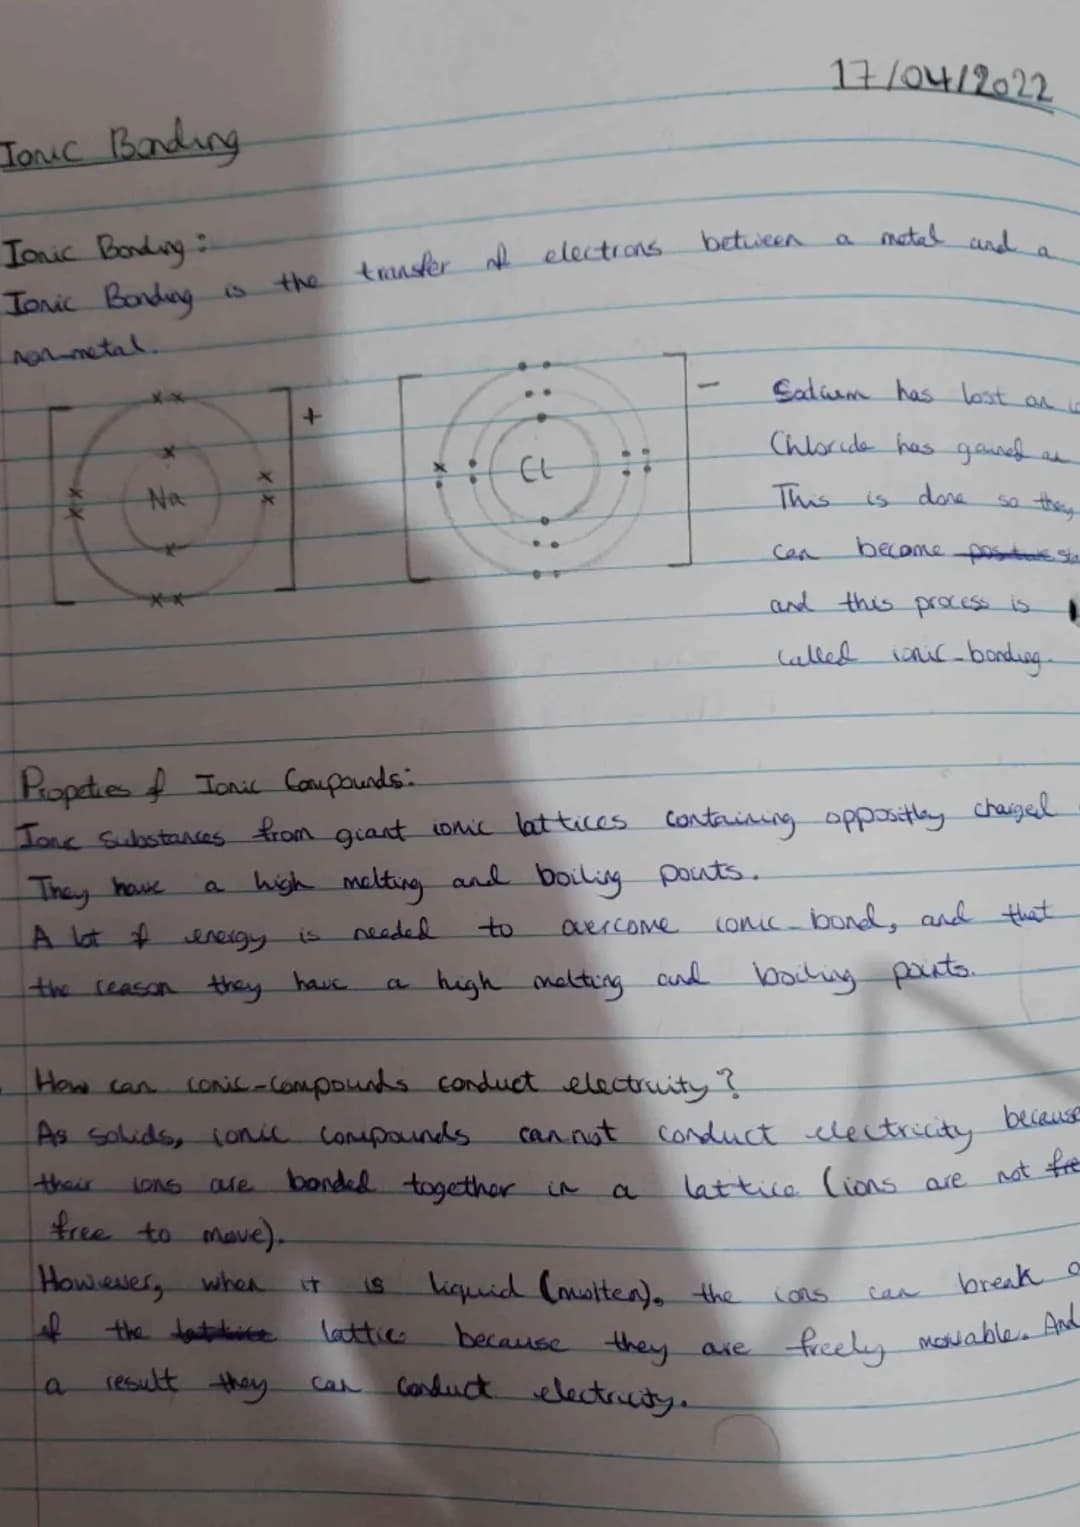 17/04/2022
Ionic Bonding
Ionic Bonding:
Ionic Bonding is the transfer of electrons between a metal and a
non-metal.
Na
+
Cl
-
Sodium has lost an
Chloride has gained an
This is done so they
can become positive
and this process is
called ionic-bonding.
Propeties of Ionic Compounds:
Ionic Substances from giant ionic lattices containing oppositley charged
They have a high melting and boiling points.
A lot of energy is needed to overcome ionic-bond, and that
the reason they have a high melting and boiling points.
How can ionic-compounds conduct electricity?
As solids, ionic compounds cannot conduct electricity because
their ions are bonded together in a lattice (ions are not fre
free to move).
However, when it is liquid (molten), the ions can break
of the lattice lattice because they are freely movable. And
a result they can conduct electricity.